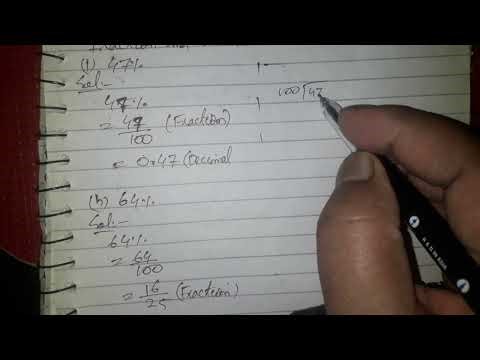 (f) 47%
Sol:-
47%
= 47/100 (Fraction)
= 0.47 (Decimal
100⟌47
(h) 64%
Sol:-
64%
= 64/100
= 16/25 (Fraction)